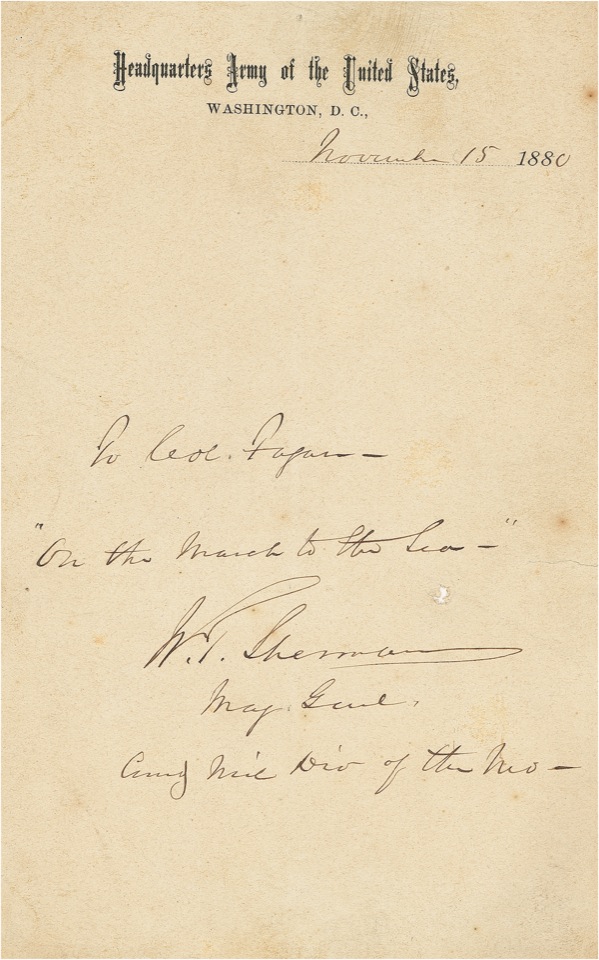 Headquarters Army of the United States,
WASHINGTON, D. C.,
November 15 1880
To Col. Fagan —
"On the March to the Sea —"
W. T. Sherman
Maj. Genl.
Comdg Mil Div of the Mo —